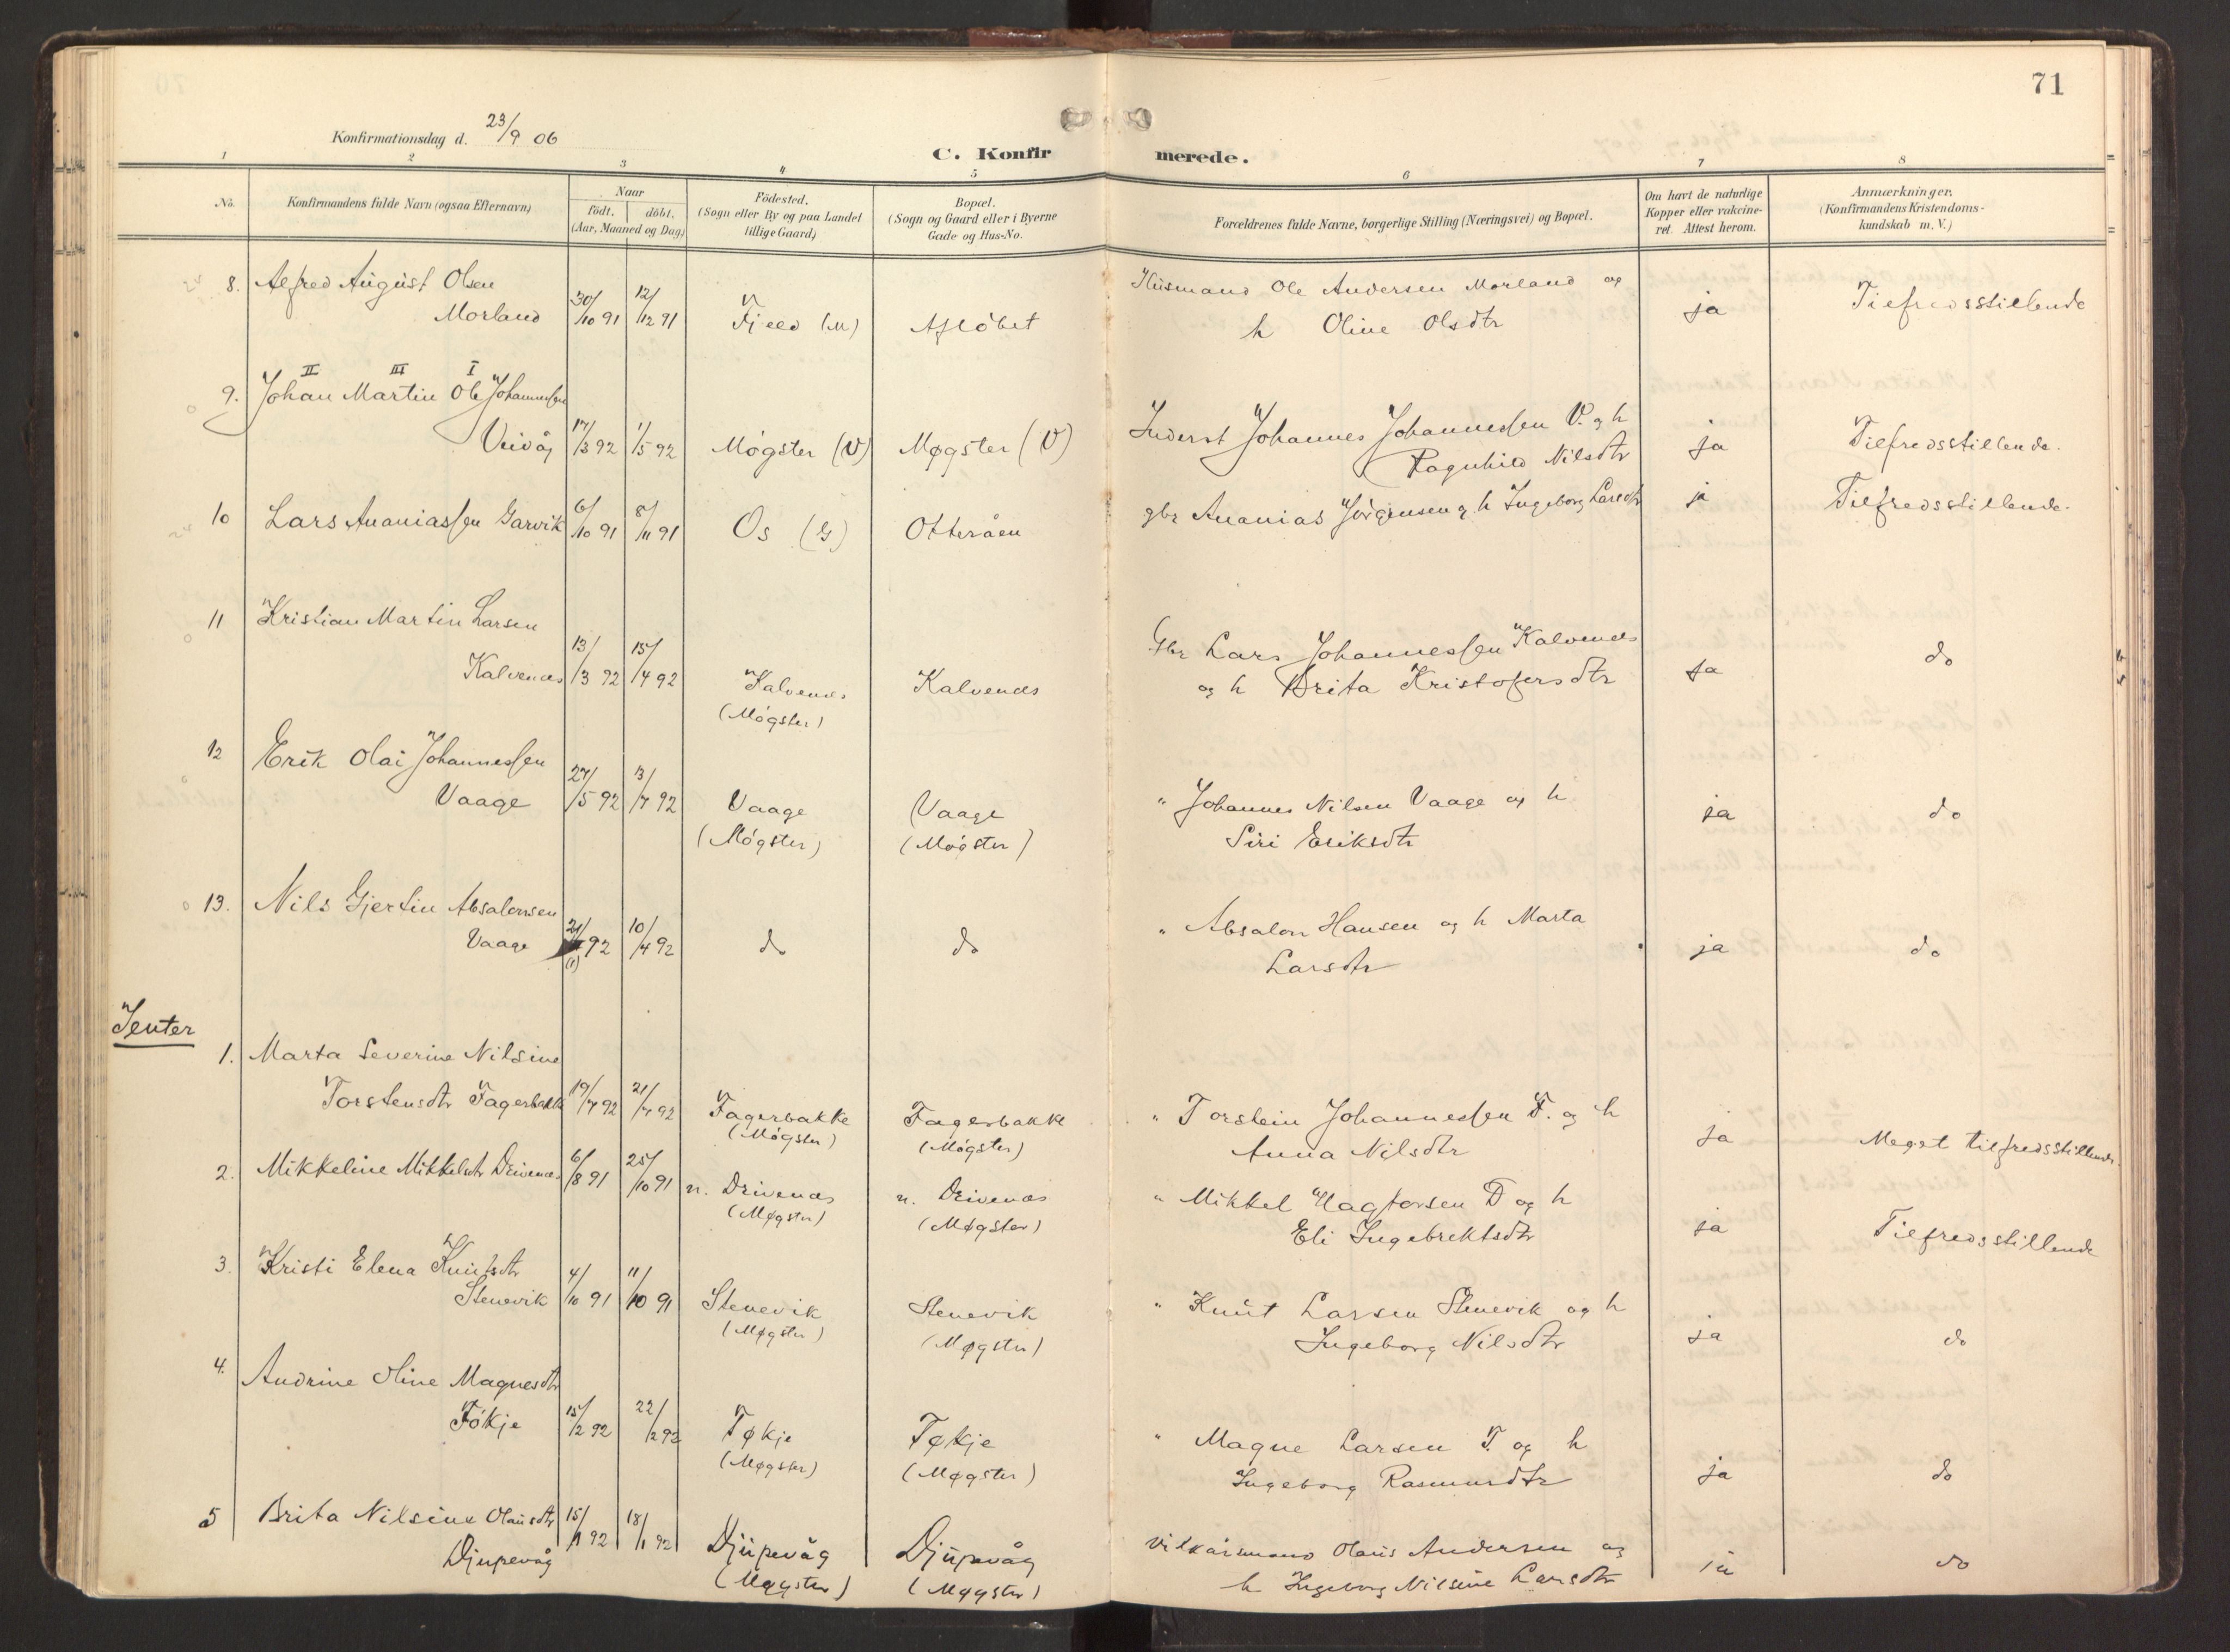 71
Konfirmationsdag d. 23/9 06
C. Konfirmerede.
1 2 3 4 5 6 7 8
No.
Konfirmandens fulde Navn (ogsaa Efternavn)
Naar
födt. döbt.
(Aar, Maaned og Dag)
Födested.
(Sogn eller By og paa Landet
tillige Gaard)
Bopæl.
(Sogn og Gaard eller i Byerne
Gade og Hus-No.
Forældrenes fulde Navne, borgerlige Stilling (Næringsvei) og Bopæl.
Om havt de naturlige
Kopper eller vakcine-
ret. Attest herom.
Anmærkninger.
(Konfirmandens Kristendoms-
kundskab m. V.)
8. Alfred August Olsen
Morland 30/10 91 12/12 91 Fjeld (M) Afløbet
Husmand Ole Andersen Morland og
h Oline Olsdtr ja Tilfredsstillende
II III I
9. Johan Martin Ole Johannessen
Veivåg 17/3 92 1/5 92 Møgster (V) Møgster (V)
Inderst Johannes Johannessen V. og h
Ragnhild Nilsdtr ja Tilfredsstillende.
10 Lars Ananiassen Garvik 6/10 91 8/11 91 Os (G) Otteråen
gbr Ananias Jørgensen og h Ingeborg Larsdtr ja Tilfredsstillende.
11 Kristian Martin Larsen
Kalvenes 13/3 92 15/4 92 Kalvenes Kalvenes
(Møgster)
Gbr Lars Johannessen Kalvenes
og h Brita Kristofersdtr ja do
12 Erik Olai Johannessen
Vaage 27/5 92 3/7 92 Vaage Vaage
(Møgster) (Møgster)
" Johannes Nilsen Vaage og h
Siri Eriksdtr ja do
13. Nils Gjertin Absalonsen
Vaage 92 10/4 92 do do
(1)
" Absalon Hansen og h Marta
Larsdtr ja do
Jenter
1. Marta Severine Nilsine
Torstensdtr Fagerbakke 19/7 92 21/7 92 Fagerbakke Fagerbakke
(Møgster) (Møgster)
" Torstein Johannessen F. og h
Anna Nilsdtr ja Meget tilfredsstillende.
2. Mikkeline Mikkelsdtr Drivenes 6/8 91 25/10 91 n. Drivenes n. Drivenes
(Møgster) (Møgster)
" Mikkel D og h
Eli Ingebrektsdtr ja Tilfredsstillende
3. Kristi Elena Knutsdtr
Stenevik 4/10 91 11/10 91 Stenevik Stenevik
(Møgster) (Møgster)
" Knut Larsen Stenevik og h
Ingeborg Nilsdtr ja do
4. Andrine Oline Magnesdtr
Tøkje 15/2 92 22/2 92 Tøkje Tøkje
(Møgster) (Møgster)
" Magne Larsen T. og h
Ingeborg Rasmusdtr ja do
5 Brita Nilsine Olausdtr
Djupevåg 15/1 92 18/1 92 Djupevåg Djupevåg
(Møgster) (Møgster)
Vilkårsmand Olaus Andersen og
h Ingeborg Nilsine Larsdtr ja do